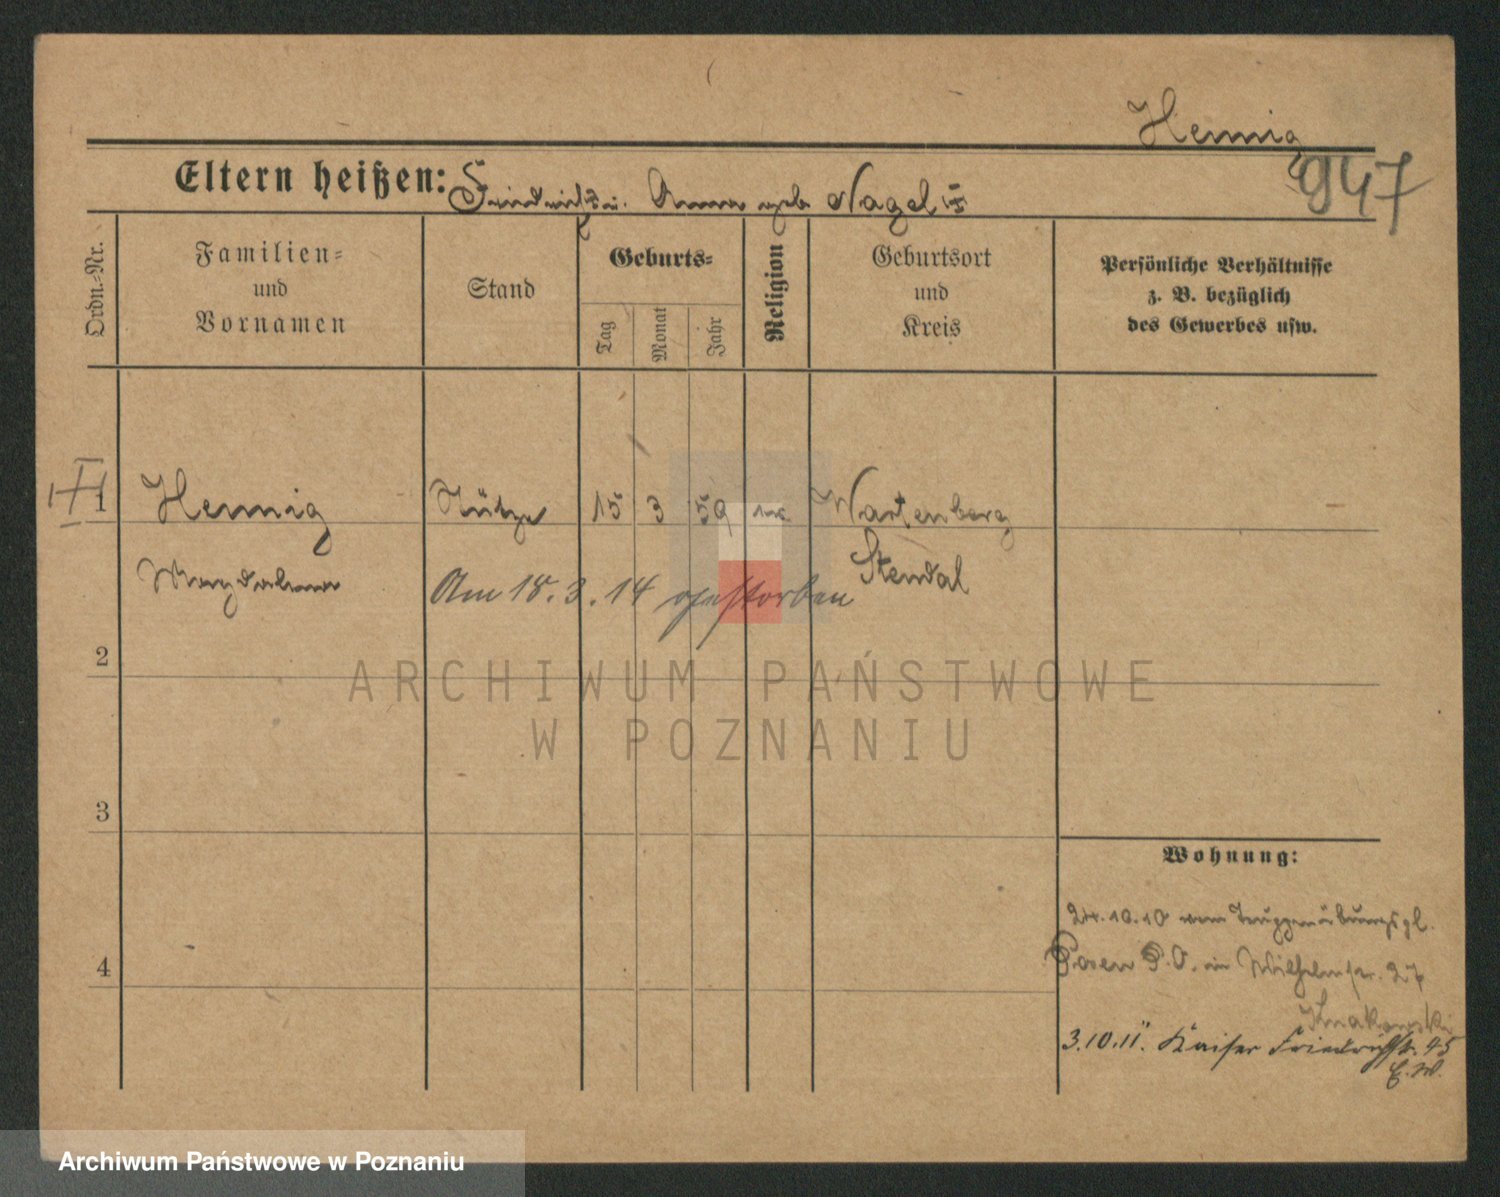 Hennig
947
Eltern heißen: Friedrich u. Anna geb Nagel
Ordn.-Nr.
Familien-
und
Vornamen
Stand
Geburts-
Tag
Monat
Jahr
Religion
Geburtsort
und
Kreis
Persönliche Verhältnisse
z. B. bezüglich
des Gewerbes usw.
1 Hennig Stütze 15 3 59 Wartenberg
Magdalena Stendal
Am 18.3.14 gestorben
2
ARCHIWUM PAŃSTWOWE
W POZNANIU
3
Wohnung:
24.10.10 vom Truppenübungspl.
4
Posen P.O. in Wilhelmstr. 27
3.10.11. Kaiser Friedrichstr. 45
E.W.
Archiwum Państwowe w Poznaniu